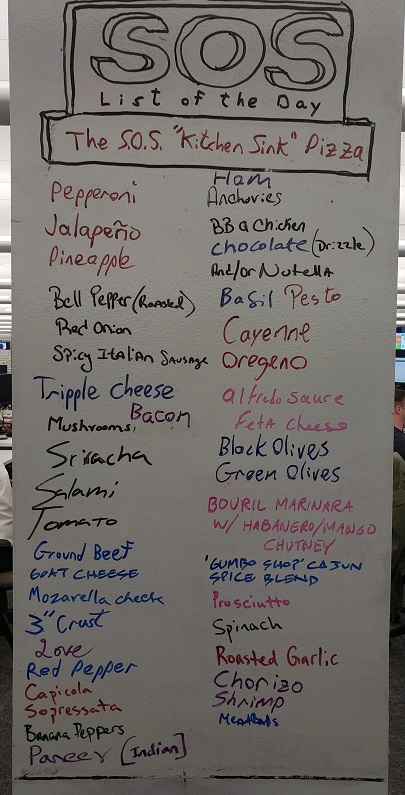 SOS
List of the Day
The S.O.S. "Kitchen Sink" Pizza
Pepperoni
Jalapeño
Pineapple
Bell Pepper (Roasted)
Red Onion
Spicy Italian Sausage
Tripple Cheese
Bacon
Mushrooms,
Sriracha
Salami
Tomato
Ground Beef
GOAT CHEESE
Mozarella cheese
3" Crust
Love
Red Pepper
Capicola
Sopressata
Banana Peppers
Paneer [Indian]
Ham
Anchovies
BBQ Chicken
chocolate (Drizzle)
And/or Nutella
Basil Pesto
Cayenne
Oregeno
alfredo sauce
Feta cheese
Black Olives
Green Olives
BOURIL MARINARA
W/ HABANERO/MANGO
CHUTNEY
'GUMBO SHOP' CAJUN
SPICE BLEND
Prosciutto
Spinach
Roasted Garlic
Chorizo
Shrimp
Meatballs